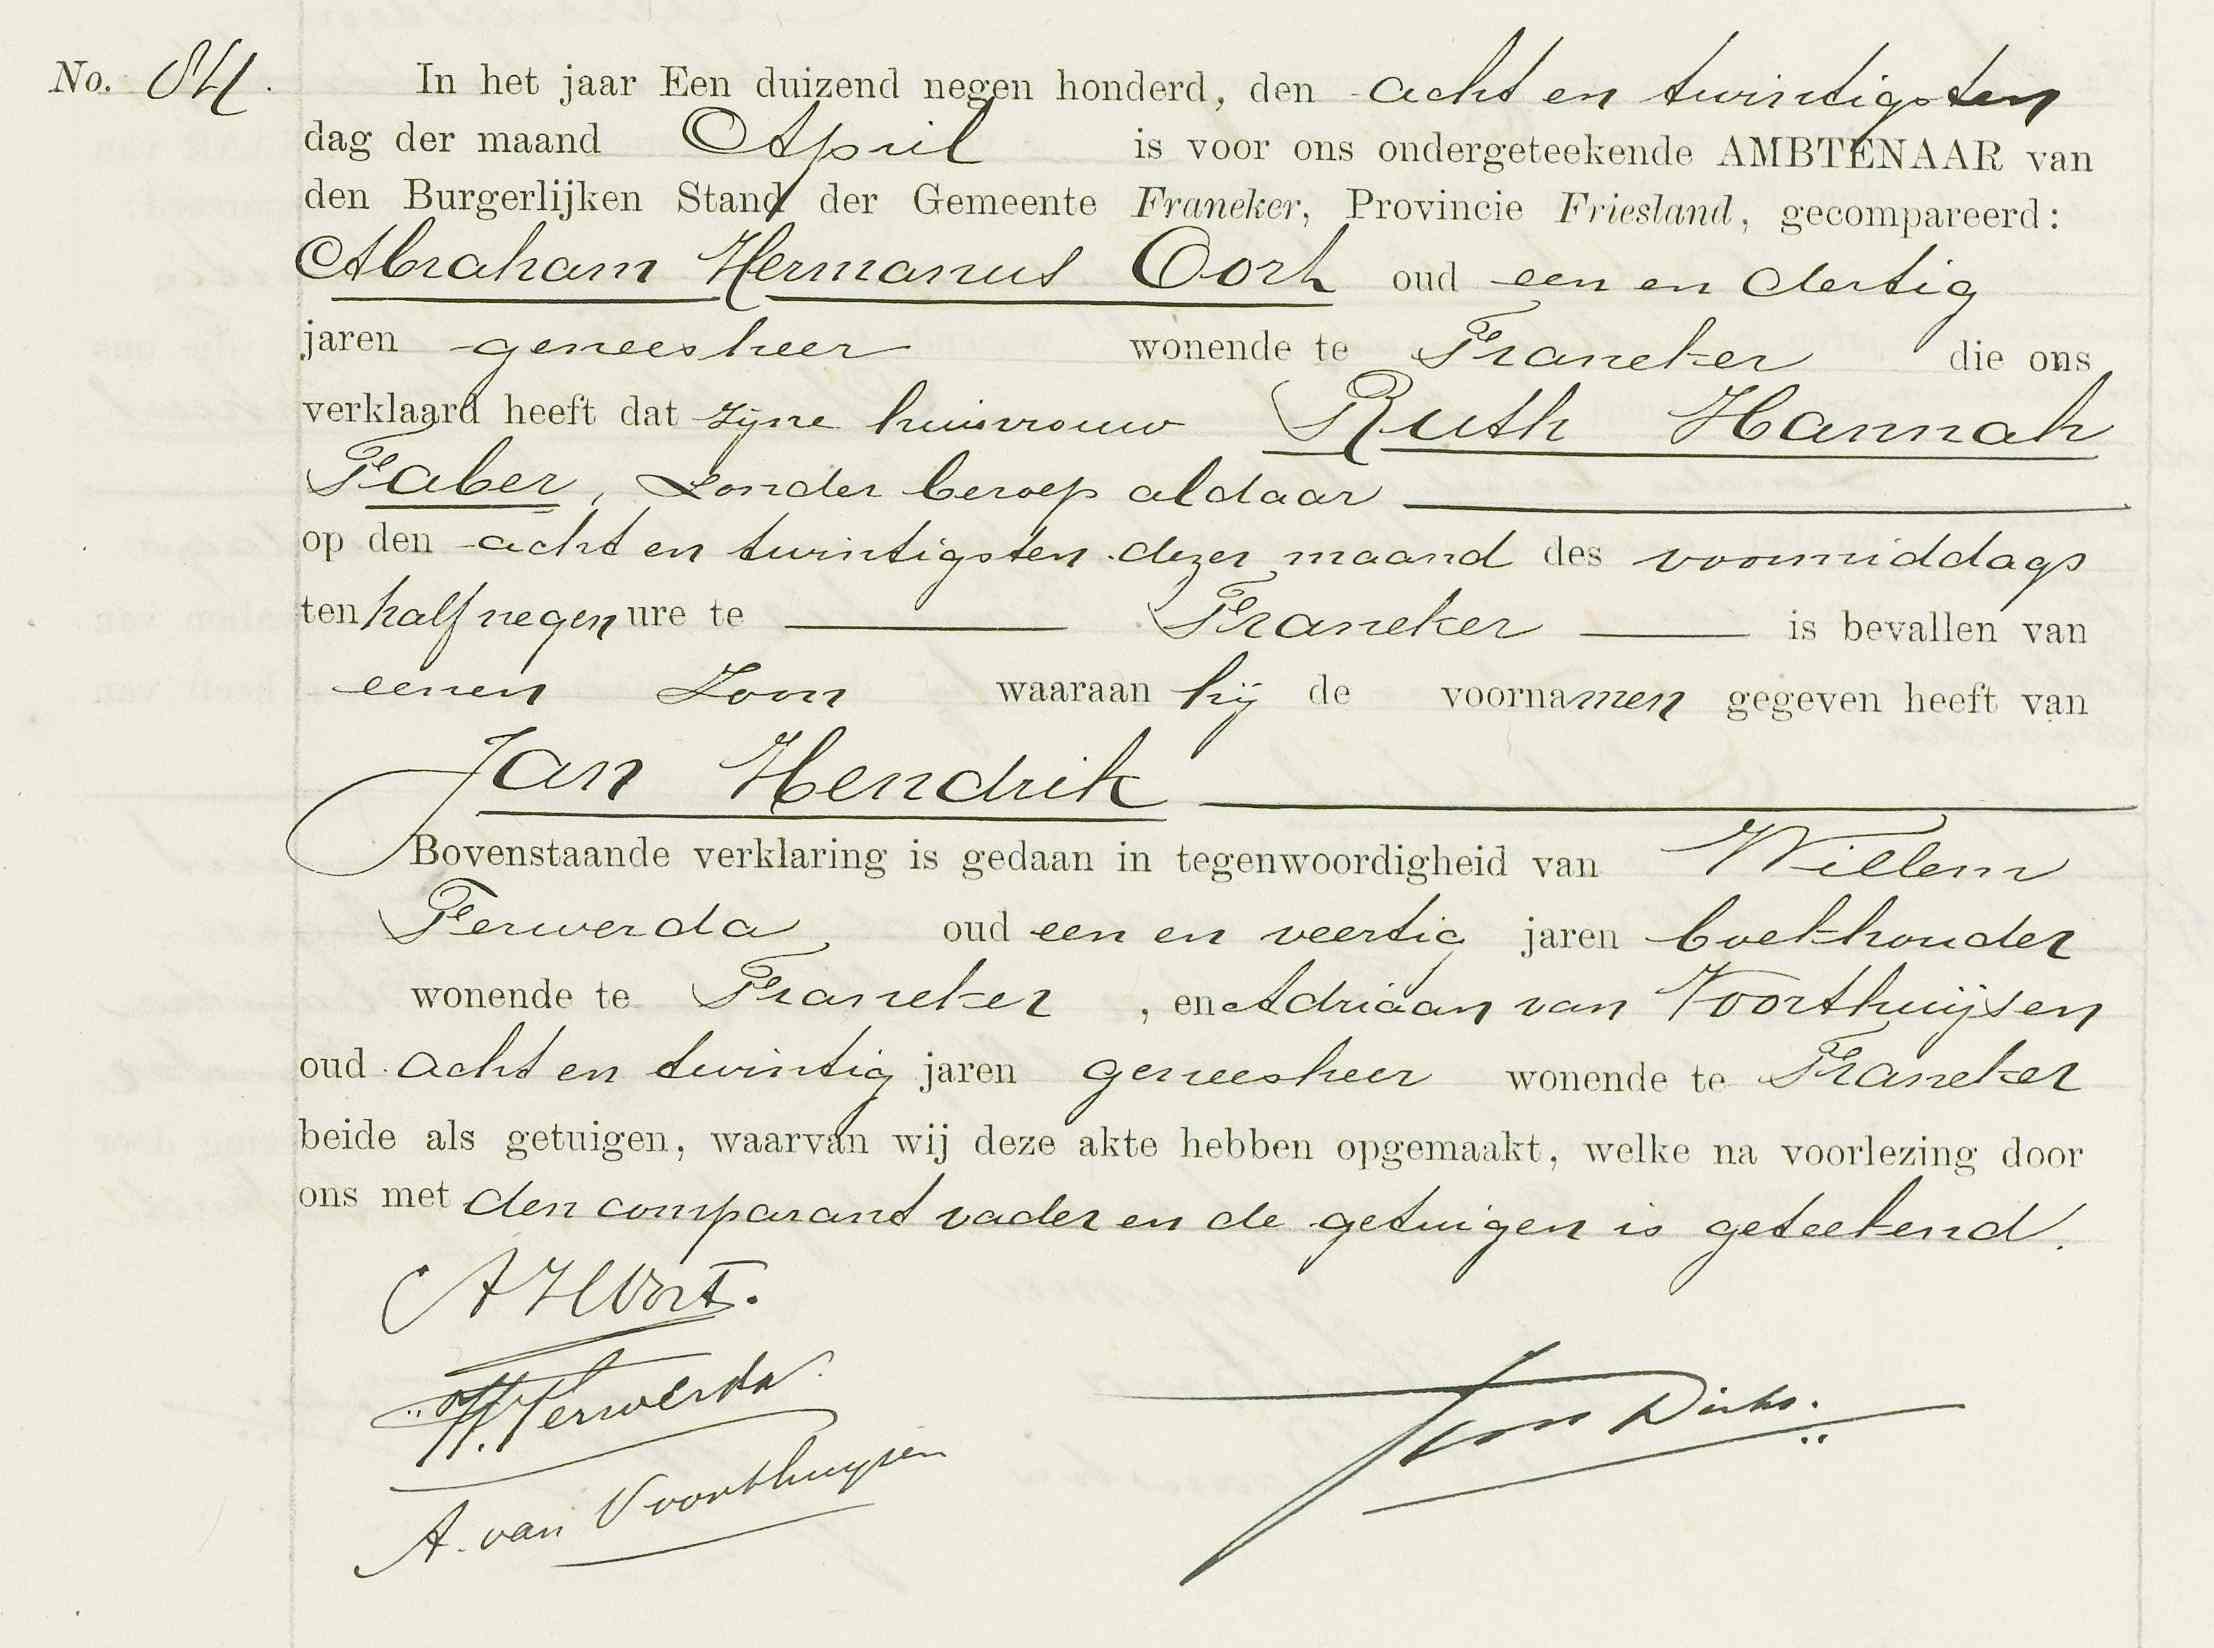 No. 84.
In het jaar Een duizend negen honderd, den acht en twintigsten
dag der maand April is voor ons ondergeteekende AMBTENAAR van
den Burgerlijken Stand der Gemeente Franeker, Provincie Friesland, gecompareerd:
Abraham Hermanus Oort oud een en dertig
jaren geneesheer wonende te Franeker die ons
verklaard heeft dat zijne huisvrouw Ruth Hannah
Faber, zonder beroep aldaar
op den acht en twintigsten dezer maand des voormiddags
ten half negen ure te Franeker is bevallen van
eenen Zoon waaraan hij de voornamen gegeven heeft van
Jan Hendrik
Bovenstaande verklaring is gedaan in tegenwoordigheid van Willem
Ferwerda, oud een en veertig jaren boekhouder
wonende te Franeker, en Adriaan van Voorthuijsen
oud acht en twintig jaren geneesheer wonende te Franeker
beide als getuigen, waarvan wij deze akte hebben opgemaakt, welke na voorlezing door
ons met den comparant vader en de getuigen is geteekend.
AHOort.
W. Ferwerda
A. van Voorthuysen
Dirks.